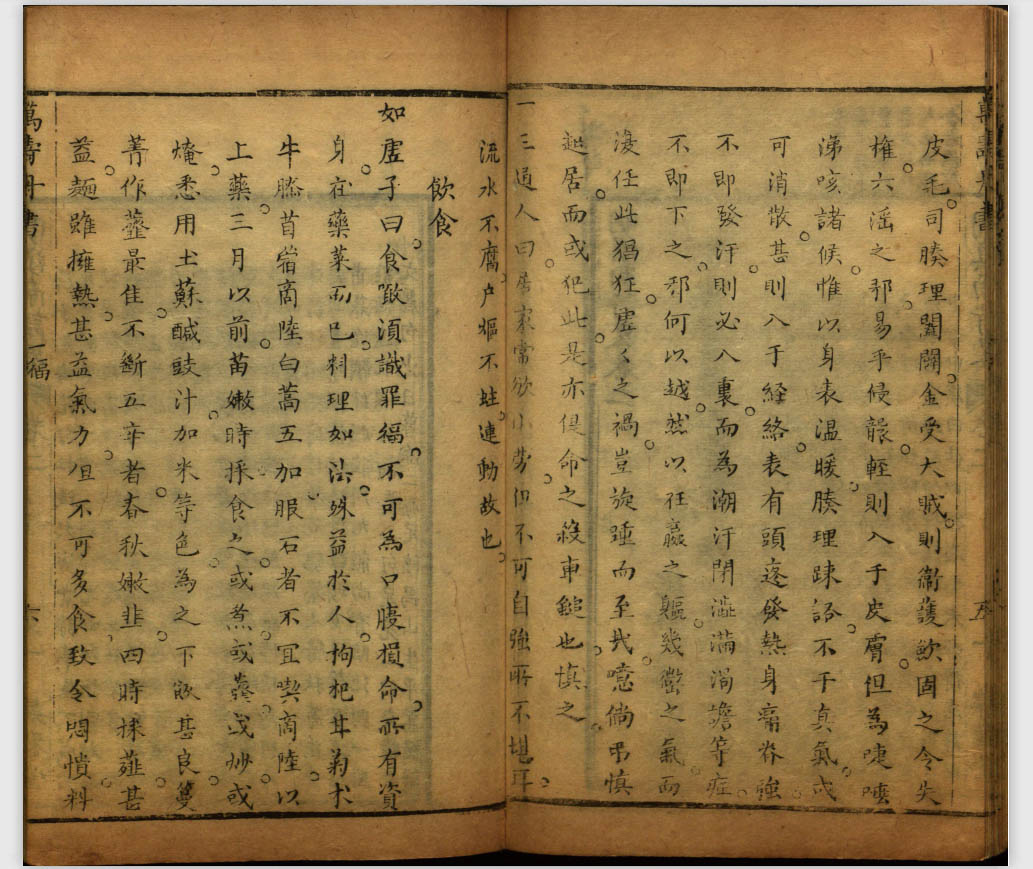 皮毛司腠理闔闢金受大賊則衛護歛固之令失
権六滛之邪易乎侵襲輕則入于皮膚但為啑唾
涕咳諸候惟以身表温暖腠理踈豁不干真氣或
可消散甚則入于経絡表有頭疼發熱身痛脊強
不即發汗則必入裏而為潮汗閉澁滿渴譫等症
不即下之邪何以越然以尫羸之軀幾㣲之氣而
漫任此猖狂虛〻之禍豈旋踵而至哉噫倘弗慎
起居而或犯此是亦促命之殺車鎚也慎之
一三通人曰居家常欲小勞但不可自強所不堪耳
流水不腐户樞不蛀連動故也
飲食
如虛子曰食啖須識罪福不可為口腹損命所有資
身在藥菜而已料理如法殊益於人枸杞甘菊术
牛膝苜蓿商陸白蒿五加服石者不宜喫商陸以
上藥三月以前苗嫩時採食之或煑或虀或炒或
㷈悉用土蘇醎豉汁加米等色為之下飯甚良蔓
菁作虀最佳不斷五辛者春秋嫩韭四時採薤甚
益麵雖擁熱甚益氣力但不可多食致令悶憒料
萬壽丹書
一福
六